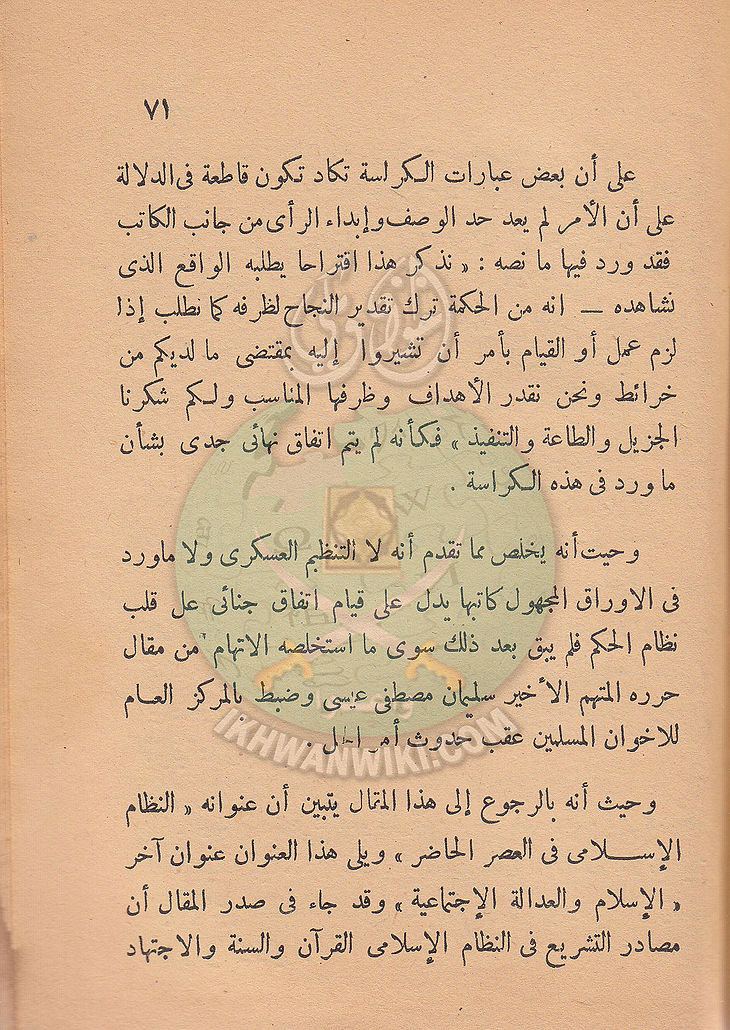 ٧١
على أن بعض عبارات الكراسة تكاد تكون قاطعة فى الدلالة
على أن الأمر لم يعد حد الوصف وإبداء الرأى من جانب الكاتب
فقد ورد فيها ما نصه : « نذكر هذا اقتراحا يطلبه الواقع الذى
نشاهده — انه من الحكمة ترك تقدير النجاح لظرفه كما نطلب إذا
لزم عمل أو القيام بأمر أن تشيروا إليه بمقتضى ما لديكم من
خرائط ونحن نقدر الأهداف وظرفها المناسب ولكم شكرنا
الجزيل والطاعة والتنفيذ » فكأنه لم يتم اتفاق نهائى جدى بشأن
ما ورد فى هذه الكراسة .
وحيت أنه يخلص مما تقدم أنه لا التنظيم العسكرى ولا ماورد
فى الاوراق المجهول كاتبها يدل على قيام اتفاق جنائى عل قلب
نظام الحكم فلم يبق بعد ذلك سوى ما استخلصه الاتهام من مقال
حرره المتهم الأخير سليمان مصطفى عيسى وضبط بالمركز العام
للاخوان المسلمين عقب حدوث أمر الحل .
وحيث أنه بالرجوع إلى هذا المقال يتبين أن عنوانه « النظام
الإسلامى فى العصر الحاضر » ويلى هذا العنوان عنوان آخر
« الإسلام والعدالة الإجتماعية » وقد جاء فى صدر المقال أن
مصادر التشريع فى النظام الإسلامى القرآن والسنة والاجتهاد
IKHWANWIKI.COM